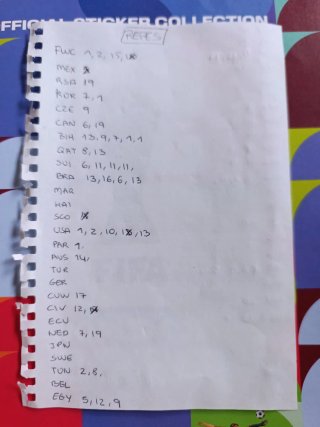 OFFICIAL STICKER COLLECTION
REPES
FWC 1, 2, 15,
MEX
RSA 19
KOR 7, 1
CZE 9
CAN 6, 19
BIH 13, 9, 7, 1, 1
QAT 8, 13
SUI 6, 11, 11, 11,
BRA 13, 16, 6, 13
MAR
HAI
SCO
USA 1, 2, 10, 13
PAR 1.
AUS 14,
TUR
GER
CUW 17
CIV 12,
ECU
NED 7, 19
JPN
SWE
TUN 2, 8,
BEL
EGY 5, 12, 9